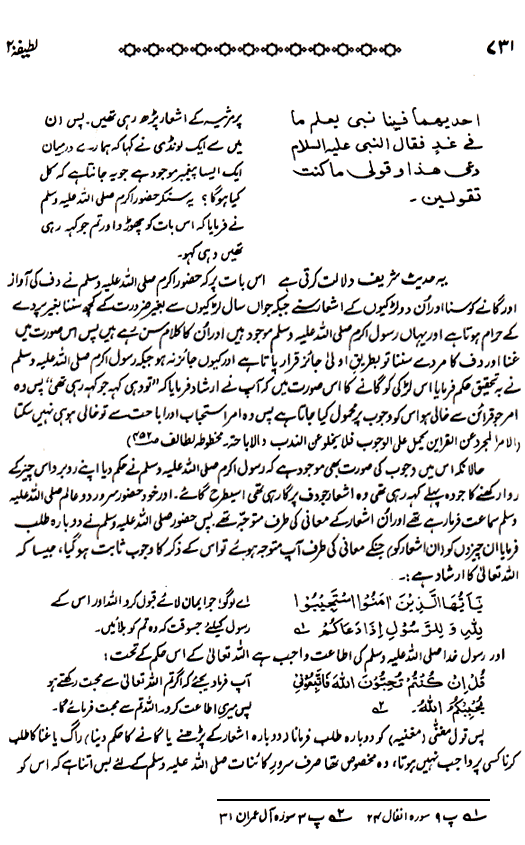 ۷۳۱ لطیفہ ۲۰
احدیھما فینا نبی یعلم ما
فی غدٍ فقال النبی علیہ السلام
دعی ھذا و قولی ما کنت
تقولین ۔
پر مرثیہ کے اشعار پڑھ رہی تھیں۔ پس ان
میں سے ایک لونڈی نے کہا کہ ہمارے درمیان
ایک ایسا پیغمبر موجود ہے جو یہ جانتا ہے کہ کل
کیا ہوگا؟ یہ سنکر حضور اکرم صلی اللہ علیہ وسلم
نے فرمایا کہ اس بات کو چھوڑ دو اور تم جو کہہ رہی
تھیں وہی کہو۔
یہ حدیث شریف دلالت کرتی ہے اس بات پر کہ حضور اکرم صلی اللہ علیہ وسلم نے دف کی آواز
اور گانے کو سنا اور اُن دو لڑکیوں کے اشعار سنے جبکہ جواں سال لڑکیوں سے بغیر ضرورت کے کچھ سننا بغیر پردے
کے حرام ہوتا ہے اور یہاں رسول اکرم صلی اللہ علیہ وسلم موجود ہیں اور اُن کا کلام سن رہے ہیں پس اس صورت میں
غنا اور دف کا مرد سے سننا تو بطریق اولیٰ جائز قرار پاتا ہے اور کیوں جائز نہ ہو جبکہ رسول اکرم صلی اللہ علیہ وسلم
نے بہ تحقیق حکم فرمایا اس لڑکی کو گانے کا اس صورت میں کہ آپ نے ارشاد فرمایا کہ "تو وہی کہہ جو کہہ رہی تھی" پس وہ
امر جو قرائن سے خالی ہو اس کو وجوب پر محمول کیا جاتا ہے پس وہ امر استحباب اور اباحت سے تو خالی ہو ہی نہیں سکتا
(الامر المجرد عن القراین یحمل علی الوجوب فلا یخلو عن الندب والاباحتہ۔ مخطوطہ لطائف ص ۴۵۲)
حالانکہ اس میں وجوب کی صورت بھی موجود ہے کہ رسول اکرم صلی اللہ علیہ وسلم نے حکم دیا اپنے روبرو اس چیز کے
روا رکھنے کا جو وہ پہلے کہہ رہی تھی وہ اشعار جو دف پر گا رہی تھی اسیطرح گائے۔ اور خود حضور سرور دو عالم صلی اللہ علیہ
وسلم سماعت فرما رہے تھے اور اُن اشعار کے معانی کی طرف متوجہ تھے۔ پس حضور صلی اللہ علیہ وسلم نے دوبارہ طلب
فرمایا ان چیزوں کو (ان اشعار کو) جنکے معانی کی طرف آپ متوجہ ہوئے تو اس کے ذکر کا وجوب ثابت ہوگیا، جیسا کہ
اللہ تعالیٰ کا ارشاد ہے:۔
یٰۤاَیُّهَا الَّذِیْنَ اٰمَنُوا اسْتَجِیْبُوْا
لِلّٰهِ وَ لِلرَّسُوْلِ اِذَا دَعَاكُمْ ۱؎
اے لوگو! جو ایمان لائے قبول کرو اللہ اور اس کے
رسول کیلئے جسوقت کہ وہ تم کو بلائیں۔
اور رسول خدا صلی اللہ علیہ وسلم کی اطاعت واجب ہے اللہ تعالیٰ کے اس حکم کے تحت:
قُلْ اِنْ كُنْتُمْ تُحِبُّوْنَ اللّٰهَ فَاتَّبِعُوْنِیْ
یُحْبِبْكُمُ اللّٰهُ۔ ۲؎
آپ فرما دیجئے کہ اگر تم اللہ تعالیٰ سے محبت رکھتے ہو
پس میری اطاعت کرو۔ اللہ تم سے محبت فرمائے گا۔
پس قول مغنّی (مغنیہ) کو دوبارہ طلب فرمانا (دوبارہ اشعار کے پڑھنے یا گانے کا حکم دینا) راگ یا غنا کا طلب
کرنا کسی پر واجب نہیں ہوتا، وہ مخصوص تھا صرف سرور کائنات صلی اللہ علیہ وسلم کے لئے بس اتنا ہے کہ اس کو
۱؎ پ ۹ سورہ انفال ۲۴ ۲؎ پ ۳ سورہ آل عمران ۳۱